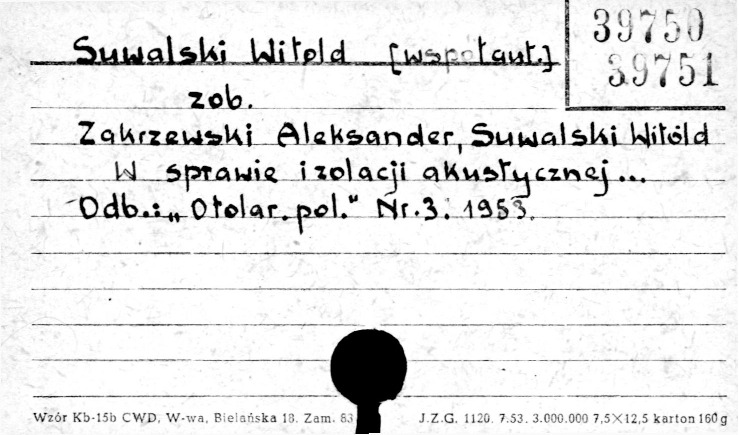 39750
39751
Suwalski Witold [współaut.]
zob.
Zakrzewski Aleksander, Suwalski Witold
W sprawie izolacji akustycznej...
Odb.: „Otolar. pol." Nr. 3. 1953.
Wzór Kb-15b CWD, W-wa, Bielańska 18. Zam. 83
J.Z.G. 1120. 7.53. 3.000.000 7,5×12,5 karton 160 g